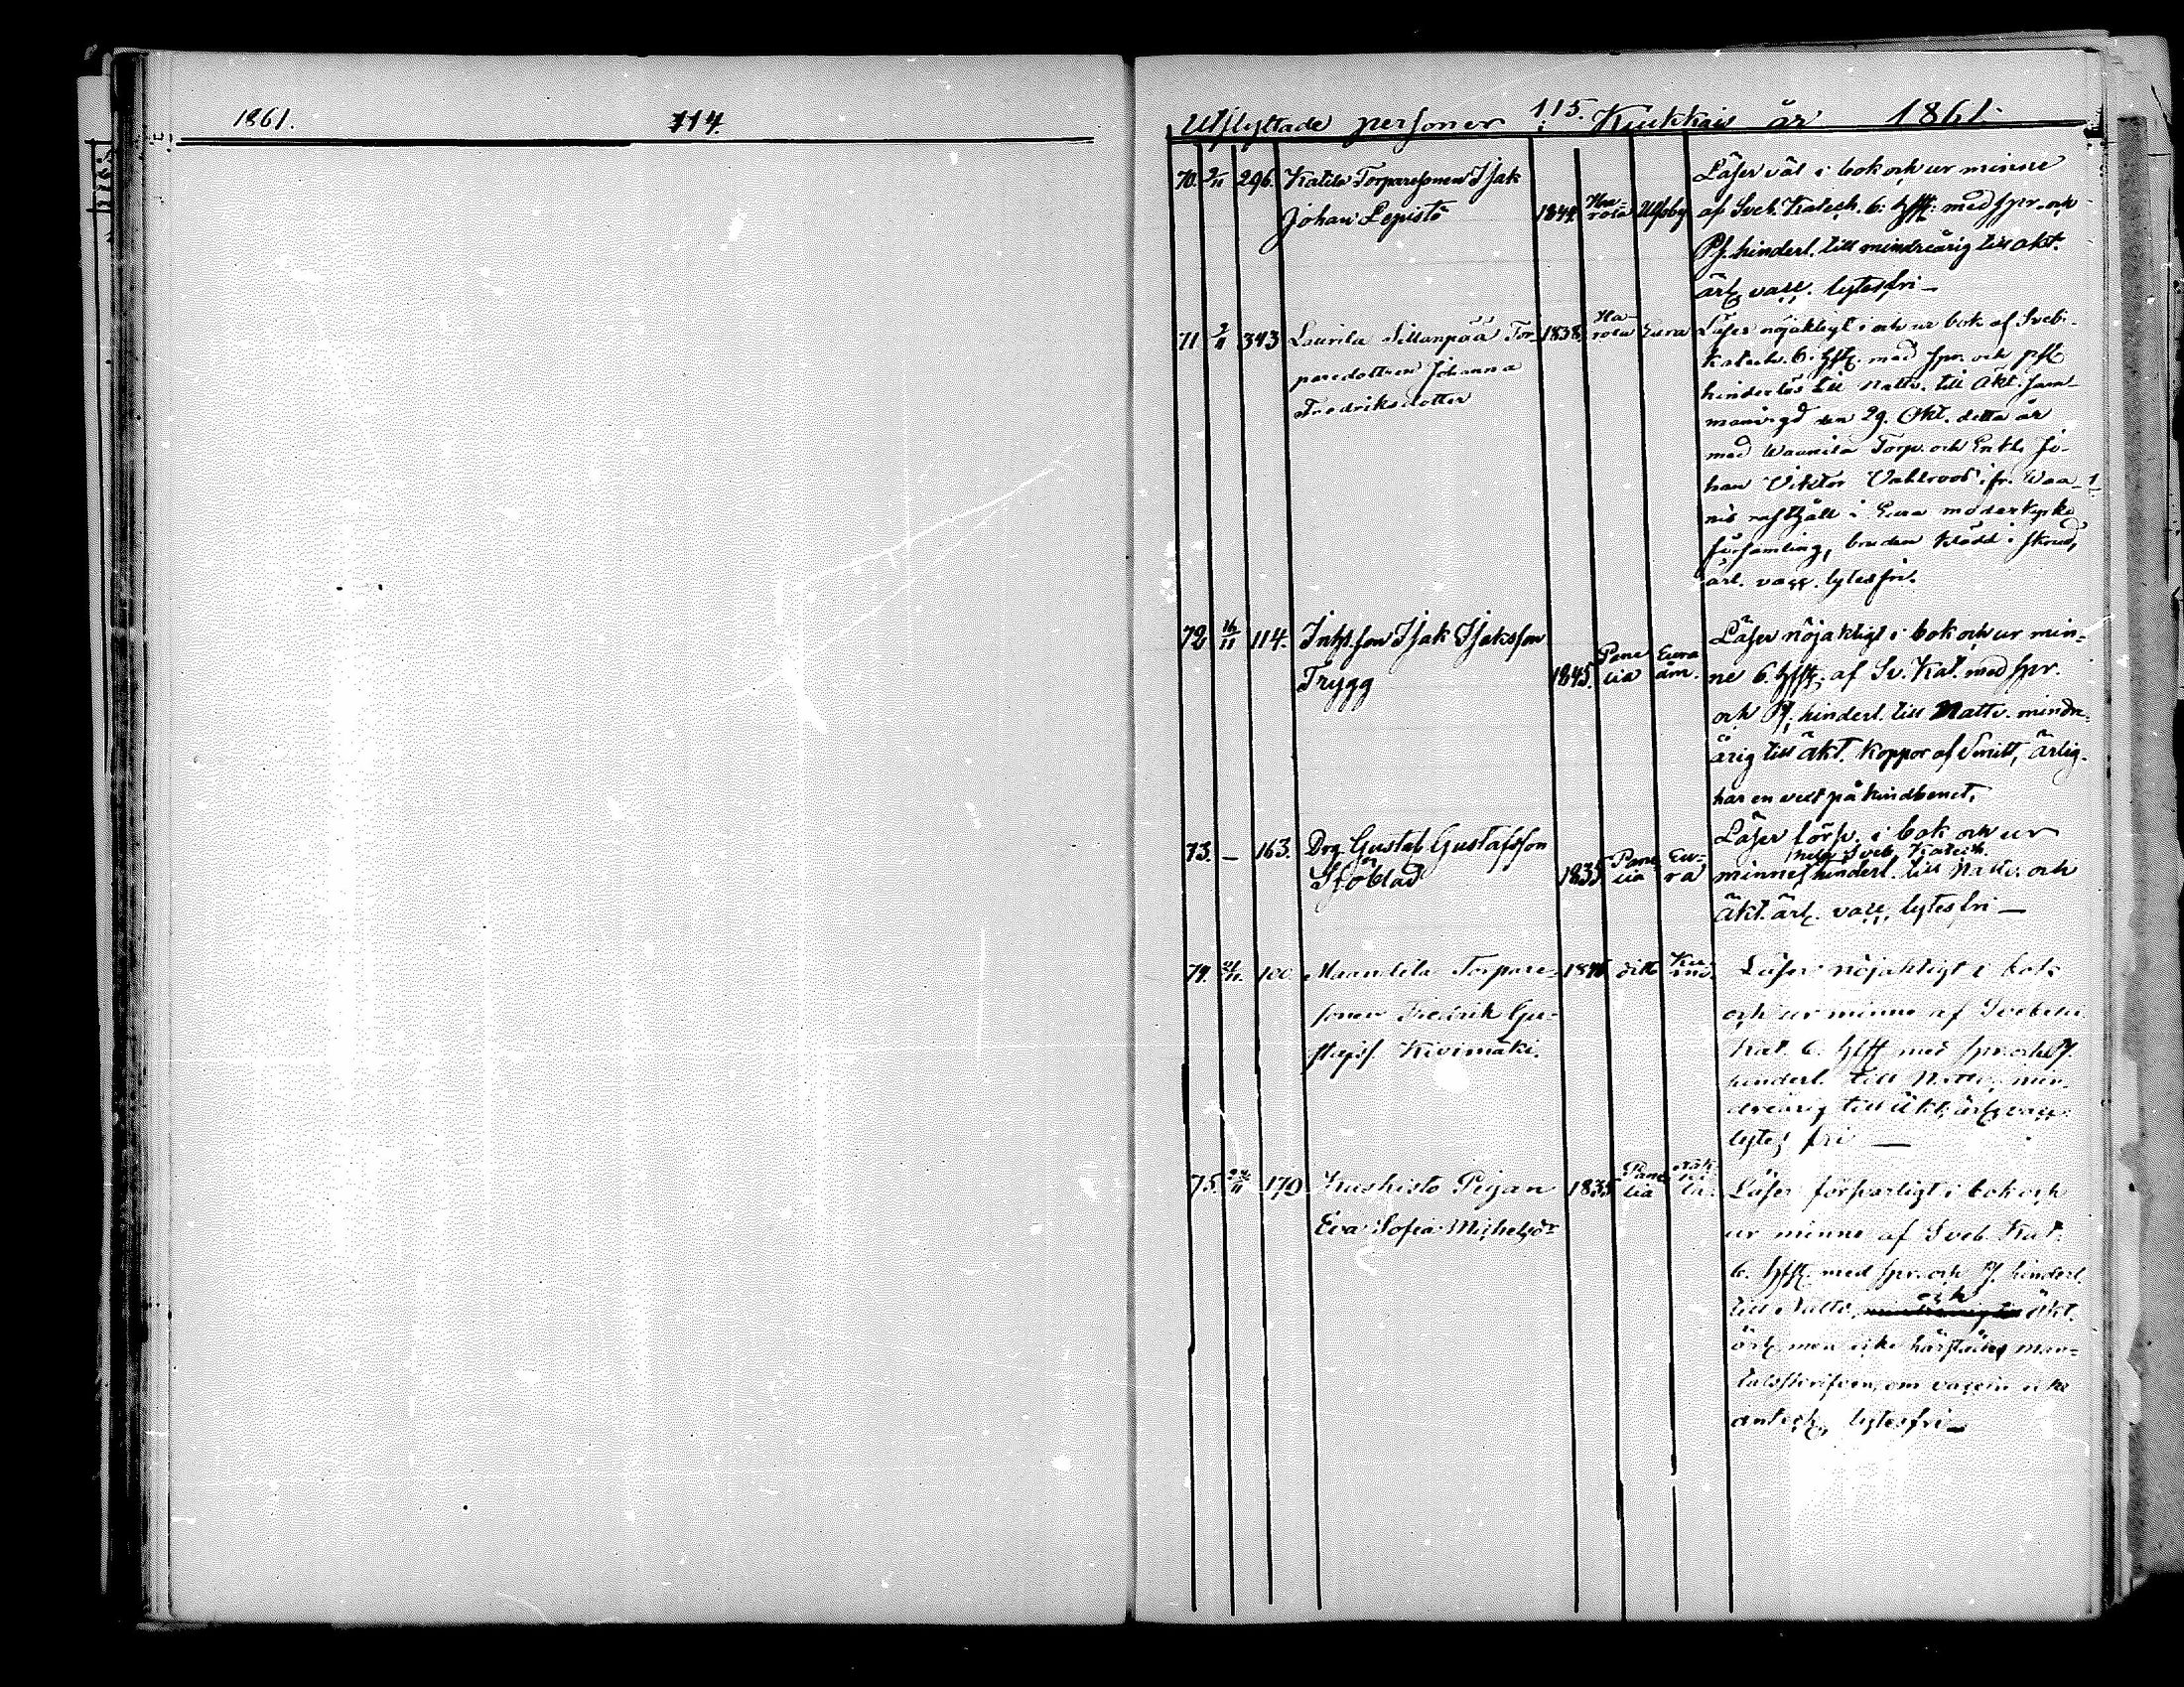 1861. 114.
Utflyttade personer 115. Kiukkais år 1861.
70. 2/11 296. Katila Torparesonen Isak
Johan Lepistö 1844. Ha-
rola Ulfsby
Läser väl i bok och ur minne
af Sveb. Katech. 6. hfft. med spr. och
Pf. hinderl. till mindreårig till äkt.
ärl. vacc. lytesfri —
71 2/11 343 Laurila Sillanpää Tor-
paredottren Johanna
Fredriksdotter 1838 Ha-
rola Eura
Läser nöjaktigt i och ur bok af Sveb.
Katech. 6. hfft. med spr. och pfl
hinderlös till Nattv. till äkt. sam-
manvigd den 29. Okt. detta år
med Waanila Torp. och Enkl. Jo-
han Viktor Vahlroos ifr. Waa-
nis rusthåll i Eura moderkyrko
församling, bruden klädd i skrud,
ärl. vacc. lytesfri.
72 16/11 114. Inhs.son Isak Isaksson
Trygg 1845. Pane
lia Eura
åm.
Läser nöjaktigt i bok och ur min-
ne 6. hfft. af Sv. Kat. med spr.
och Pf. hinderl. till Nattv. mindre-
årig till äkt. Koppor af Smitt, ärlig.
har en vext på kindbenet,
73. — 163. Drg Gustaf Gustafsson
Sjöblad 1835 Pane
lia Eu-
ra
Läser förſv. i bok och ur
hela Sveb. Katech.
minnet, hinderl. till Nattv. och
äkt. ärl. vacc. lytesfri —
74. 100. Maunula Torpare-
sonen Fredrik Gu-
stafss. Kivimäki. ditt
Läser nöjaktigt i bok
och ur minne af Svebelii
Kat. 6. hfft med spr. och Pf.
hinderl. till Nattv. min-
dreårig till äkt. ärl. vacc.
lytes fri —
75. 170 Pigan
Eva Sofia Michelsdr 1835 Pane
lia
Läser försvarligt i bok och
ur minne af Sveb. Kat.
6. hfft. med spr. och Pf. hinderl.
till Nattv. och äkt.
ärl. men icke härstädes man-
talsskrifven, om vaccin icke
anteck. lytesfri —